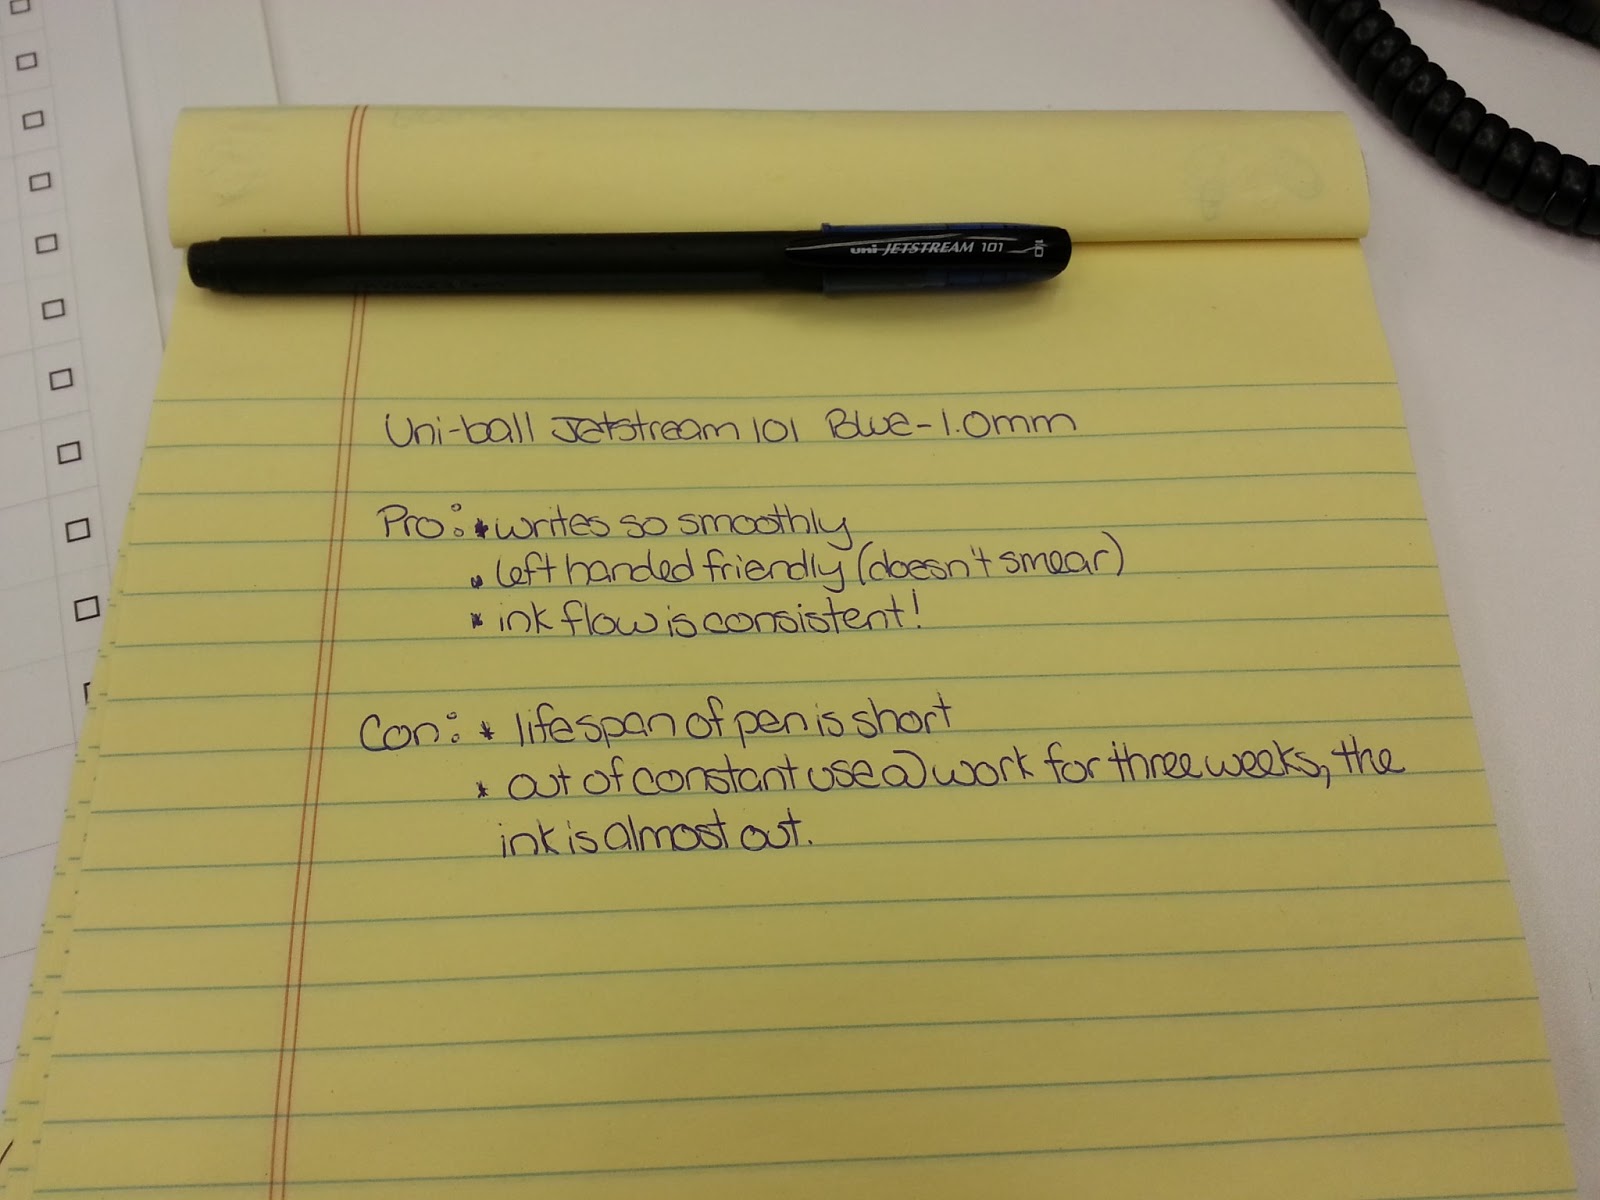 uni JETSTREAM 101 1.0
Uni-ball Jetstream 101 Blue-1.0mm
Pro: * writes so smoothly
* left handed friendly (doesn't smear)
* ink flow is consistent!
Con: * lifespan of pen is short
* out of constant use @ work for three weeks, the
ink is almost out.